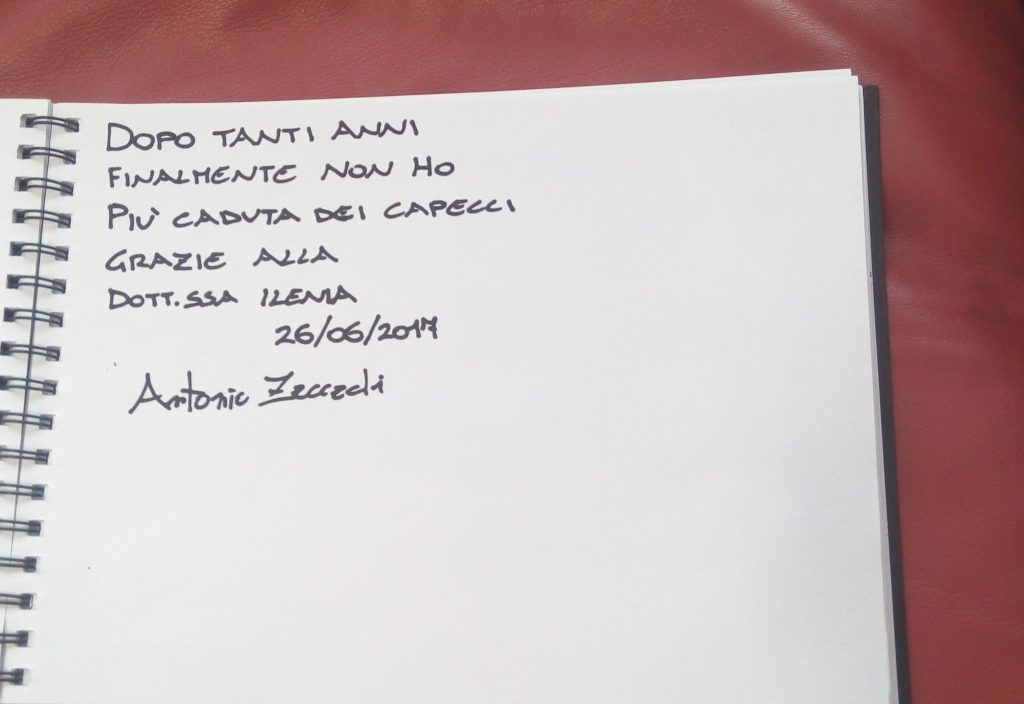 DOPO TANTI ANNI
FINALMENTE NON HO
PIÙ CADUTA DEI CAPELLI
GRAZIE ALLA
DOTT.SSA ILENIA
26/06/2017
Antonio